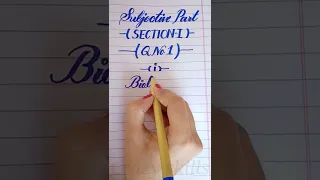 Subjective Part
(SECTION-I)
(Q.No 1)
(i)